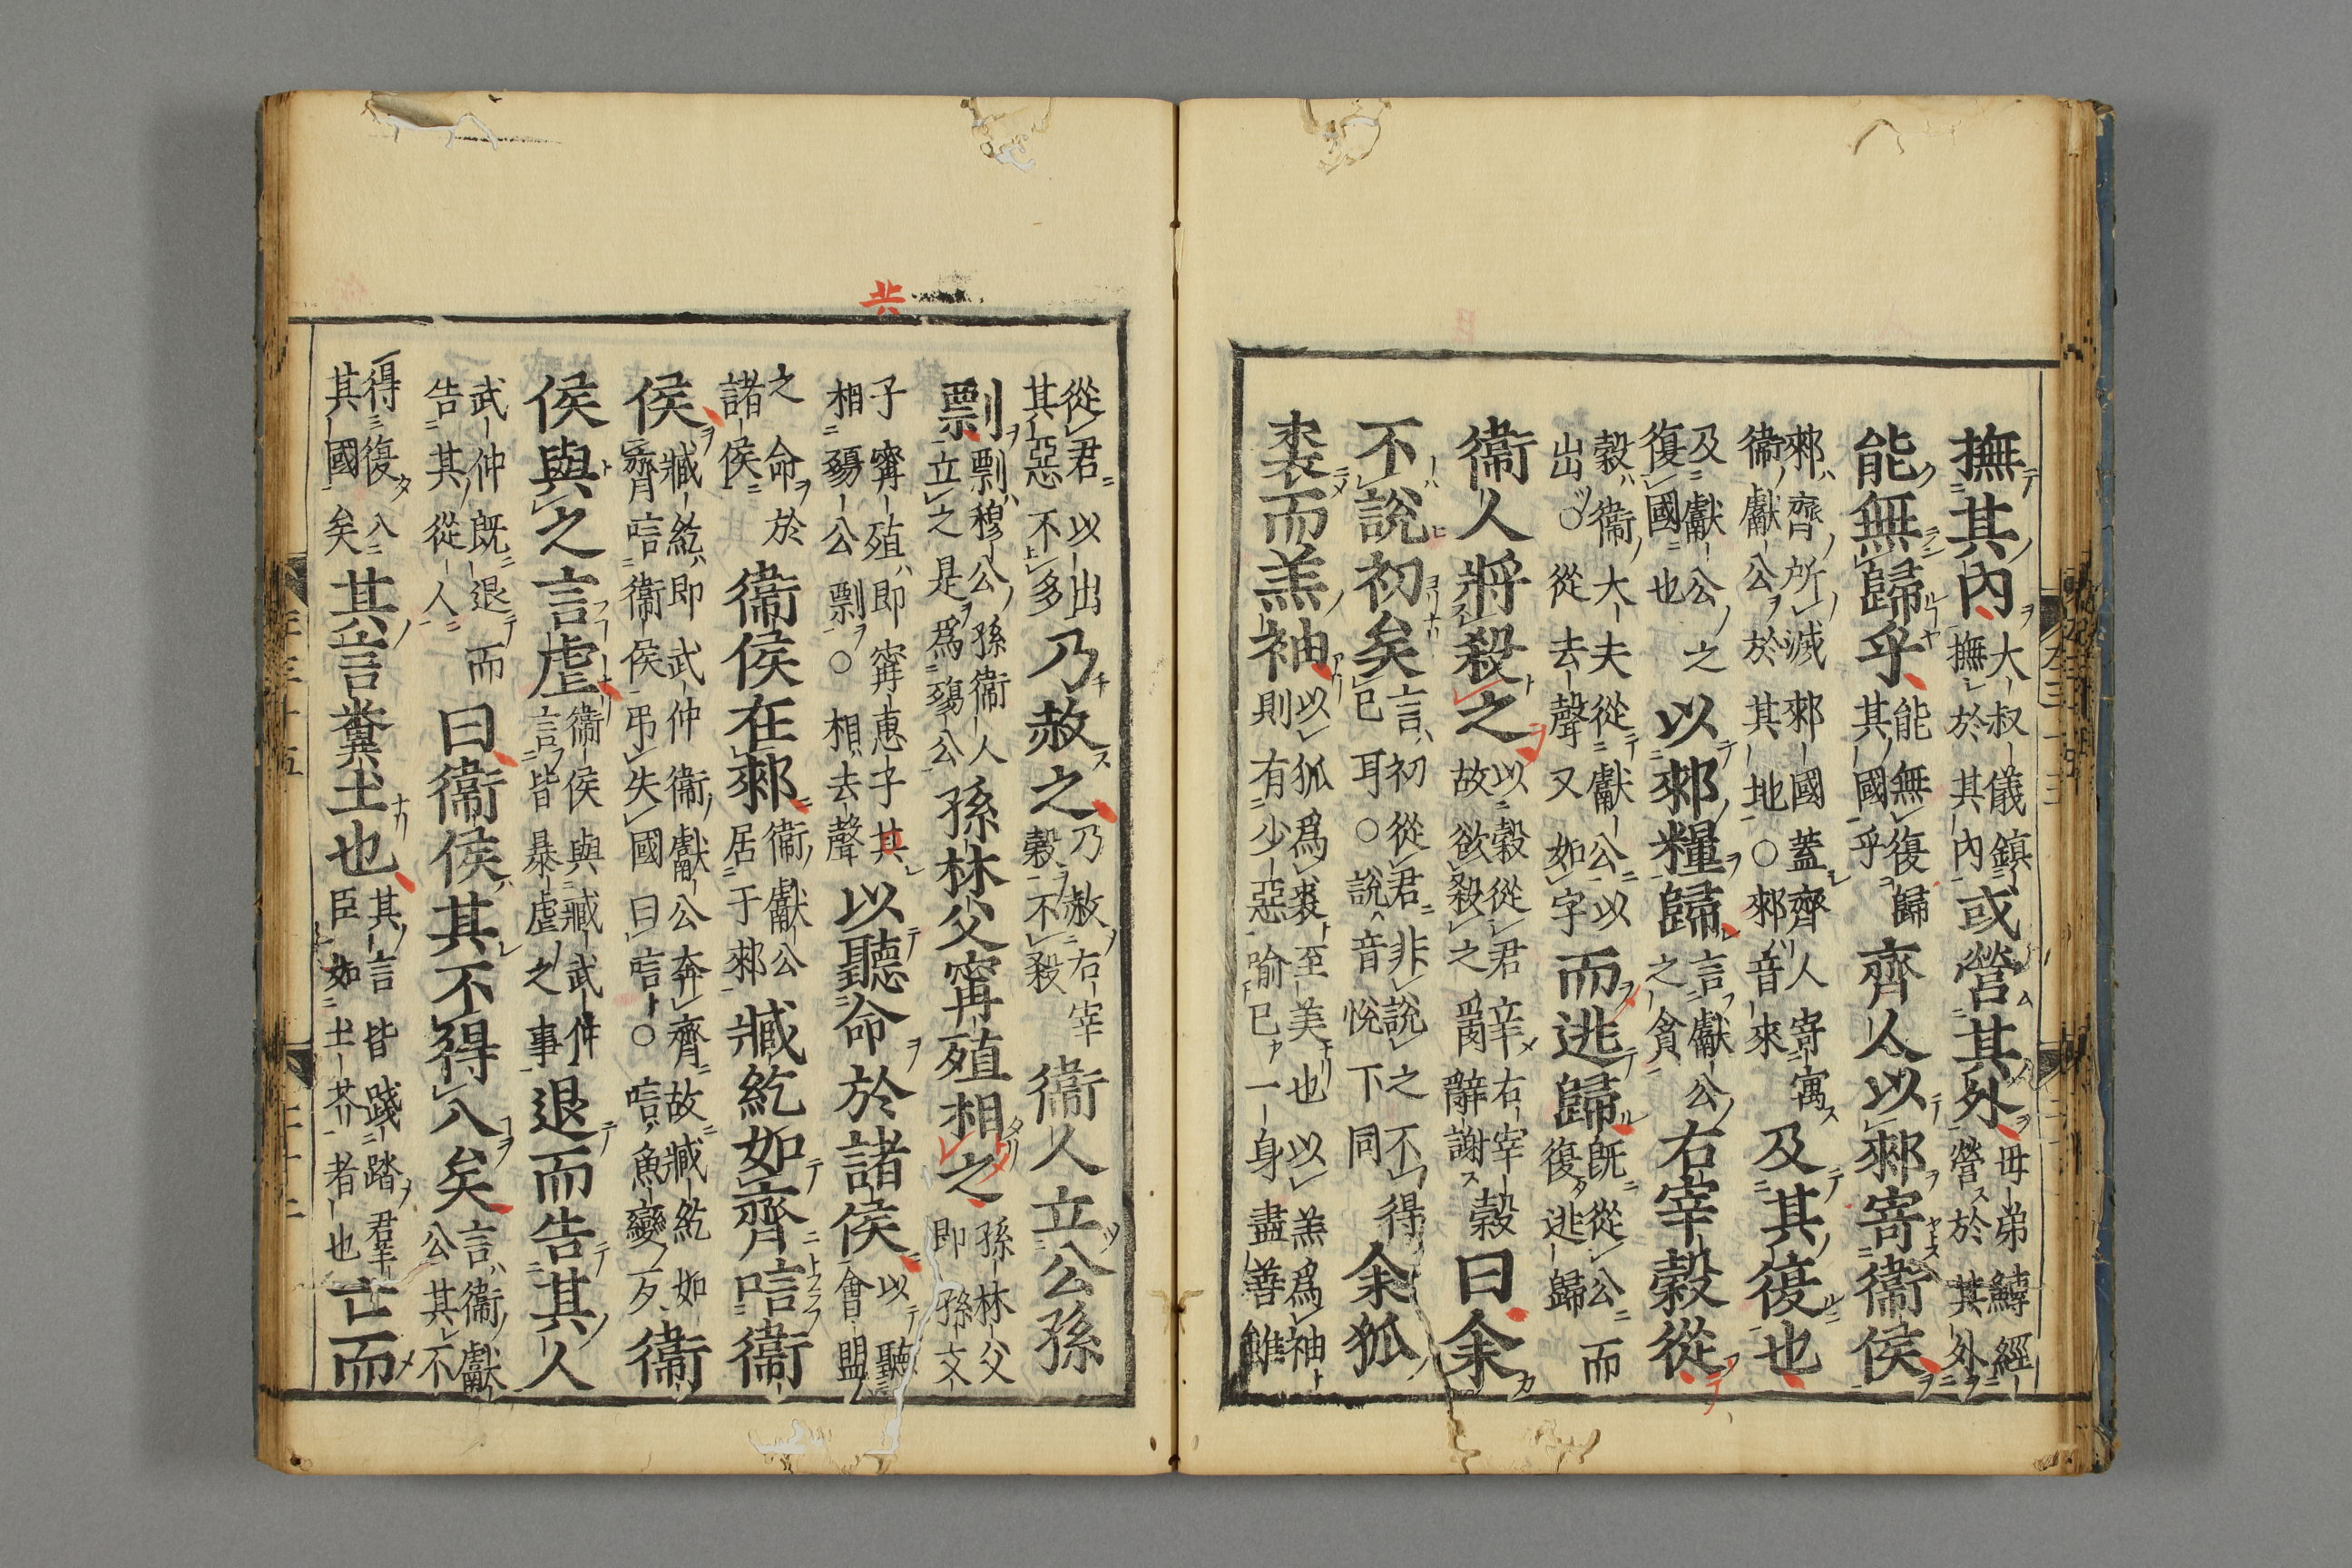 撫其內大叔儀鎮撫於其內或營其外母弟鱄經營於其外
能無歸乎能無復歸其國乎齊人以郲寄衞侯
郲齊所滅郲國蓋齊人寄寓衞獻公於其地○郲音來及其復也
及獻公之復國也以郲糧歸言獻公之貪右宰穀從
穀衞大夫從獻公以出○從去聲又如字而逃歸既從公而復逃歸
衞人將殺之以穀從君故欲殺之辭右宰穀辭謝曰余
不說初矣言初從君非說之不得已耳○說音悅下同余狐
裘而羔袖以狐爲裘至美也以羔爲袖則有少惡喻已一身盡善雖
從君以出其惡不多乃赦之乃赦右宰穀不殺衞人立公孫
剽剽穆公孫衞人立之是爲殤公孫林父寗殖相之孫林父即孫文
子寗殖即寗惠子其相殤公剽○相去聲以聽命於諸侯以聽會盟
之命於諸侯衞侯在郲衞獻公居于郲臧紇如齊唁衞
侯臧紇即武仲衞獻公奔齊故臧紇如齊唁衞侯弔失國曰唁○唁魚變反衞
侯與之言虐衞侯與臧武仲言皆暴虐之事退而告其人
武仲既退而告其從人曰衞侯其不得入矣言衞獻公其不
得復入其國矣其言糞土也其言皆踐踏羣臣如土芥者也亡而